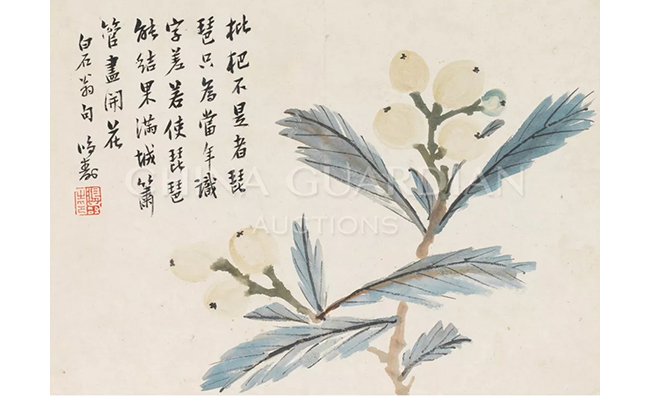 枇杷不是者琵
琶只為當年識
字差若使琵琶
能結果滿城簫
管盡開花
白石翁句
CHINA GUARDIAN
AUCTIONS